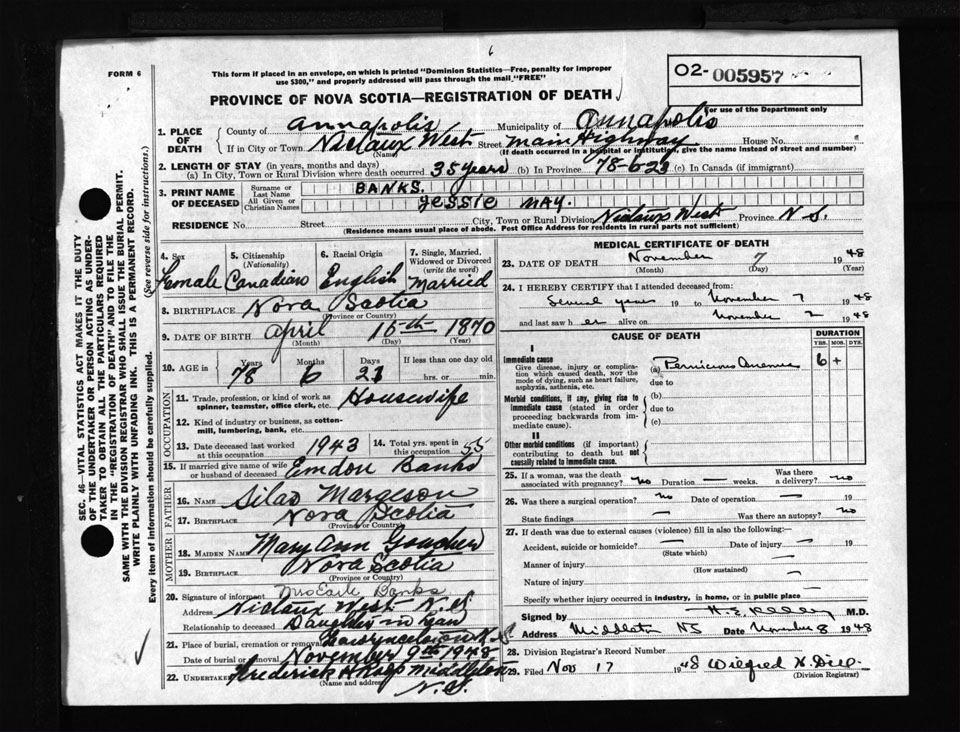 6
FORM 6
This form if placed in an envelope, on which is printed "Dominion Statistics—Free, penalty for improper
use $300," and properly addressed will pass through the mail "FREE"
02-005957
PROVINCE OF NOVA SCOTIA—REGISTRATION OF DEATH
For use of the Department only
1. PLACE OF DEATH
County of Annapolis Municipality of Annapolis
If in City or Town Nictaux West Street Main Highway House No.
(Name) (If death occurred in a hospital or institution, give the name instead of street and number)
2. LENGTH OF STAY (in years, months and days)
(a) In City, Town or Rural Division where death occurred 35 years (b) In Province 78-6-23 (c) In Canada (if immigrant)
3. PRINT NAME OF DECEASED
Surname or Last Name BANKS.
All Given or Christian Names JESSIE MAY.
RESIDENCE No. Street City, Town or Rural Division Nictaux West Province N.S.
(Residence means usual place of abode. Post Office Address for residents in rural parts not sufficient)
4. Sex Female
5. Citizenship (Nationality) Canadian
6. Racial Origin English
7. Single, Married, Widowed or Divorced (write the word) Married
8. BIRTHPLACE Nova Scotia
(Province or Country)
9. DATE OF BIRTH April 15th 1870
(Month) (Day) (Year)
10. AGE in Years 78 Months 6 Days 23 If less than one day old
hrs. or min.
OCCUPATION
11. Trade, profession, or kind of work as
spinner, teamster, office clerk, etc. Housewife
12. Kind of industry or business, as cotton-
mill, lumbering, bank, etc.
13. Date deceased last worked at this occupation 1943
14. Total yrs. spent in this occupation 55
15. If married give name of wife or husband of deceased Emdon Banks
FATHER
16. NAME Silas Margeson
17. BIRTHPLACE Nova Scotia
(Province or Country)
MOTHER
18. MAIDEN NAME Mary Ann
19. BIRTHPLACE Nova Scotia
(Province or Country)
20. Signature of informant Mrs Earle Banks
Address Nictaux West N.S
Relationship to deceased Daughter in Law
21. Place of burial, cremation or removal N.S.
Date of burial or removal November 9th 1948
22. UNDERTAKER Frederick Middleton
(Name and address) N.S.
MEDICAL CERTIFICATE OF DEATH
23. DATE OF DEATH November 7 1948
(Month) (Day) (Year)
24. I HEREBY CERTIFY that I attended deceased from:
Several years 19 to November 7 1948
and last saw h er alive on November 2 1948
CAUSE OF DEATH
DURATION
YRS. MOS. DYS.
I
Immediate cause
Give disease, injury or complica-
tion which caused death, NOT the
mode of dying, such as heart failure,
asphyxia, asthenia, etc.
(a) Pernicious Anemia 6 +
due to
Morbid conditions, if any, giving rise to
immediate cause (stated in order
proceeding backwards from im-
mediate cause).
(b)
due to
(c)
II
Other morbid conditions (if important)
contributing to death but not
causally related to immediate cause.
25. If a woman, was the death associated with pregnancy? no Duration — weeks. Was there a delivery? no
26. Was there a surgical operation? no Date of operation — 19
State findings — Was there an autopsy? no
27. If death was due to external causes (violence) fill in also the following:—
Accident, suicide or homicide? — Date of injury — 19
(State which)
Manner of injury —
(How sustained)
Nature of injury —
Specify whether injury occurred in industry, in home, or in public place
Signed by H. E. Kelley M.D.
Address Middleton NS Date November 8 1948
28. Division Registrar's Record Number
29. Filed Nov 17 1948 Wilfred H. Gill.
(Division Registrar)
SEC. 46—VITAL STATISTICS ACT MAKES IT THE DUTY
OF THE UNDERTAKER OR PERSON ACTING AS UNDER-
TAKER TO OBTAIN ALL THE PARTICULARS REQUIRED
IN THE "REGISTRATION OF DEATH" AND TO FILE THE
SAME WITH THE DIVISION REGISTRAR WHO SHALL ISSUE THE BURIAL PERMIT.
WRITE PLAINLY WITH UNFADING INK. THIS IS A PERMANENT RECORD.
Every item of information should be carefully supplied.
(See reverse side for instructions.)